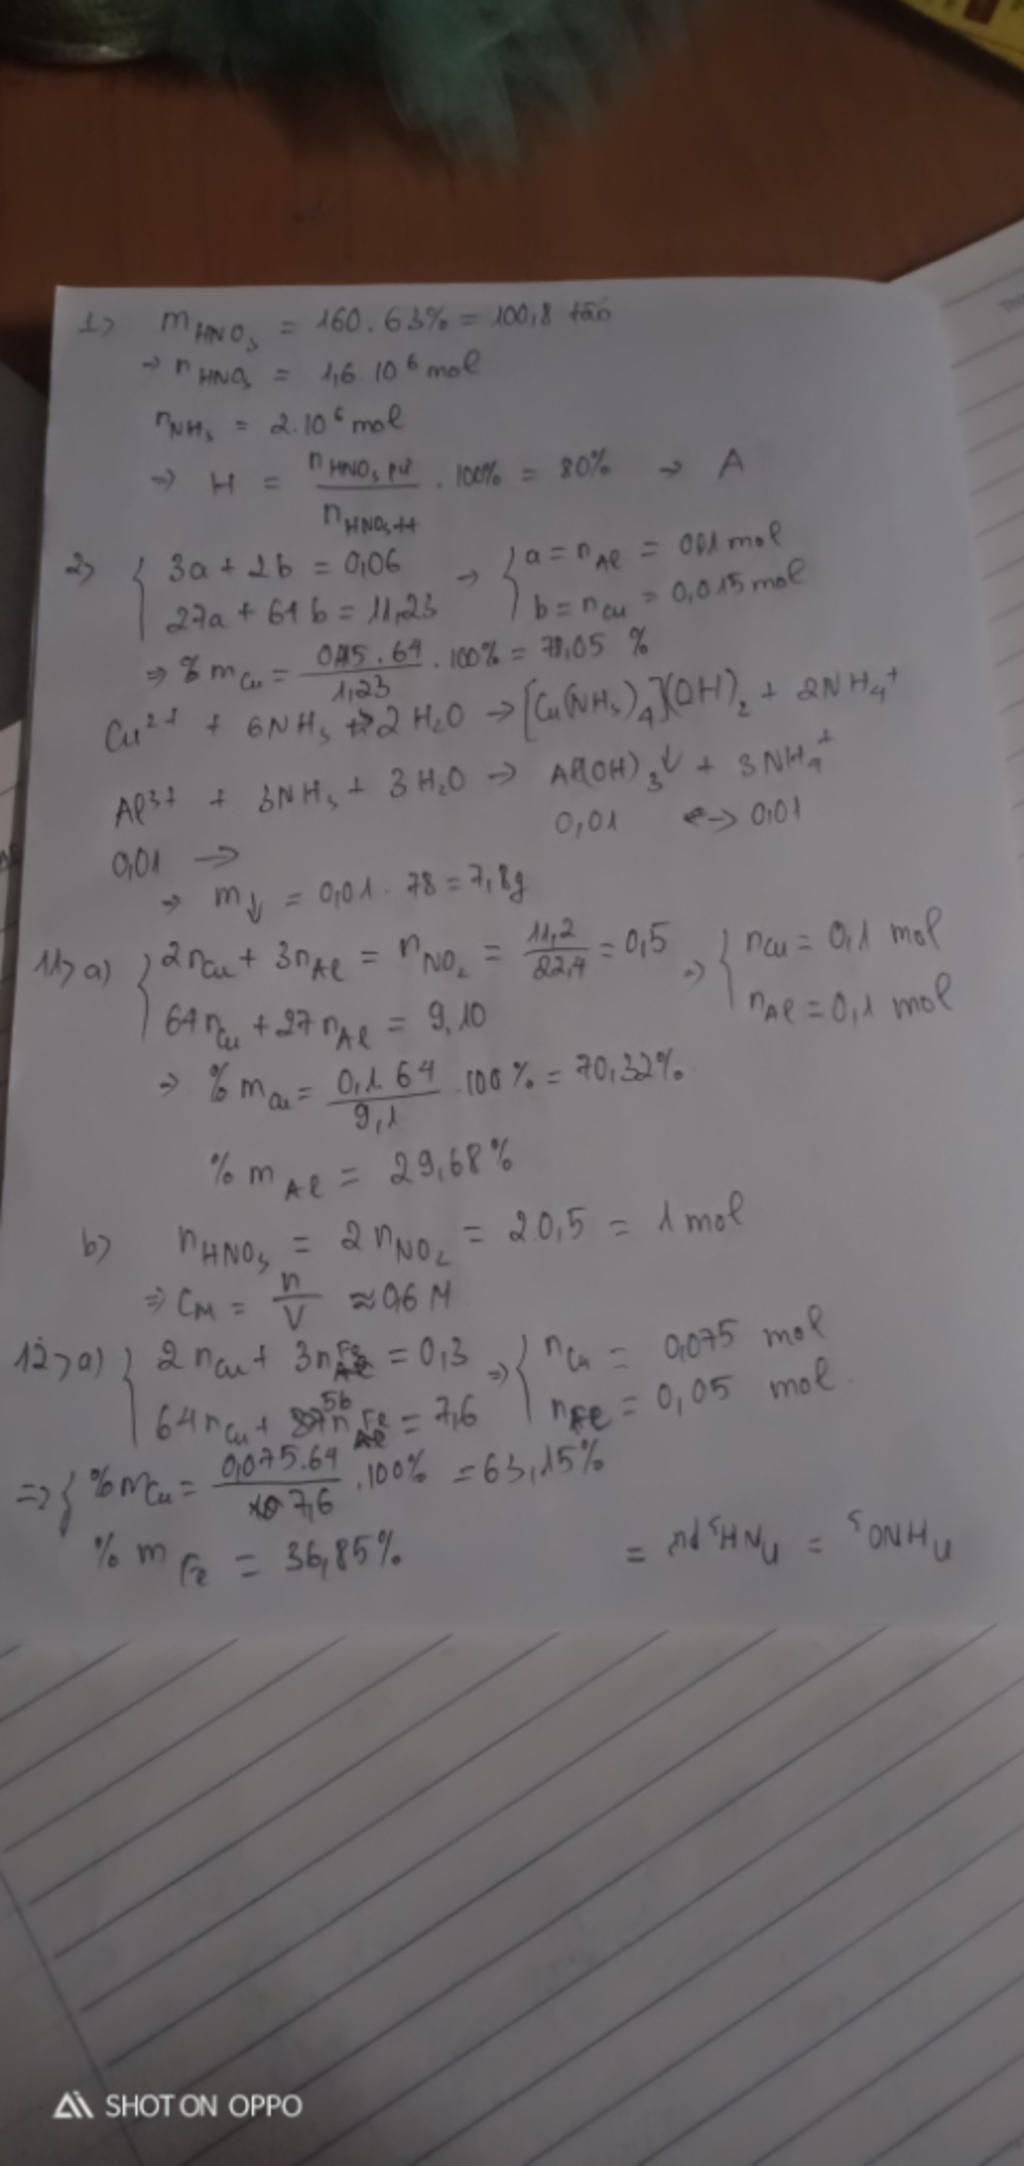 1> mHNO3 = 160.63% = 100,8 tấn
→ nHNO3 = 1,6.10^6 mol
nNH3 = 2.10^6 mol
→ H = nHNO3 pư / nHNO3 tt . 100% = 80% → A
2> { 3a + 2b = 0,06 → { a = nAl = 0,01 mol
27a + 64b = 11,23 b = nCu = 0,015 mol
⇒ % mCu = 0,015.64 / 1,23 . 100% = 78,05 %
Cu2+ + 6NH3 + 2H2O → [Cu(NH3)4](OH)2 + 2NH4+
Al3+ + 3NH3 + 3H2O → Al(OH)3↓ + 3NH4+
0,01 → 0,01 ↔ 0,01
→ m↓ = 0,01.78 = 7,8g
11> a) { 2nCu + 3nAl = nNO2 = 11,2 / 22,4 = 0,5 → { nCu = 0,1 mol
64nCu + 27nAl = 9,10 nAl = 0,1 mol
→ % mCu = 0,1.64 / 9,1 . 100% = 70,32%
% mAl = 29,68%
b) nHNO3 = 2nNO2 = 2.0,5 = 1 mol
⇒ CM = n / V ≈ 0,6 M
12> a) { 2nCu + 3nFe = 0,3 ⇒ { nCu = 0,075 mol
64nCu + 56nFe = 7,6 nFe = 0,05 mol
=> { % mCu = 0,075.64 / 7,6 . 100% = 63,15%
% mFe = 36,85%
nHNO3 = nNH3 pư =
SHOT ON OPPO